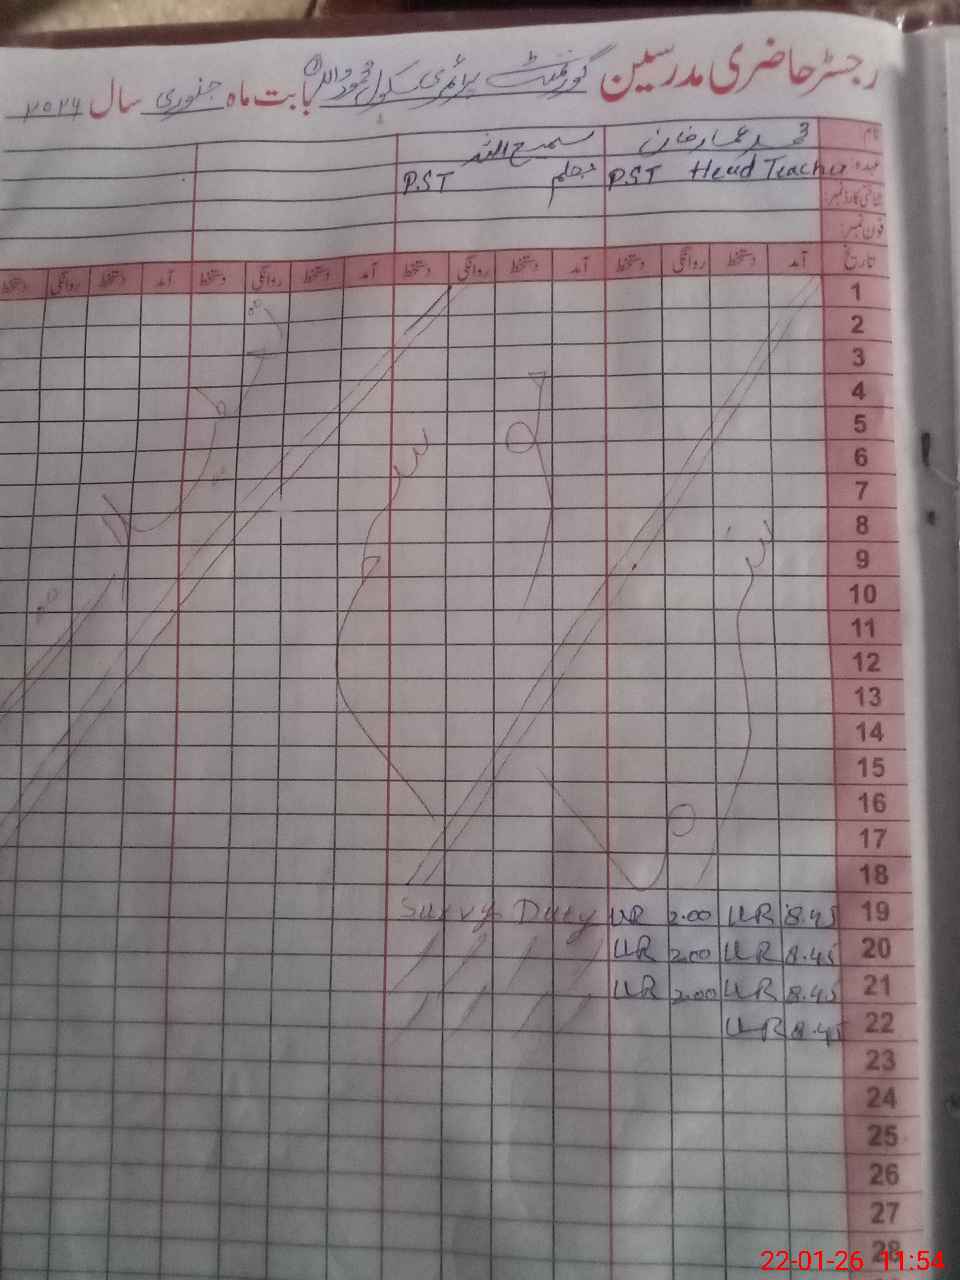 رجسٹر حاضری مدرسین گورنمنٹ پرائمری سکول محمود والہ بابت ماہ جنوری سال ۲۰۲۶
نام محمد عمار خان سمیع اللہ
عہدہ: Head Teacher P.ST معلم P.ST
شناختی کارڈ نمبر:
فون نمبر:
تاریخ آمد دستخط روانگی دستخط آمد دستخط روانگی دستخط آمد دستخط روانگی دستخط آمد دستخط روانگی دستخط
1
2
3
4
5
6
7
8
9
10
11
12
13
14
15
16
17
18
19 8.45 UR 2.00 UR Survy Duty
20 8.45 UR 2.00 UR
21 8.45 UR 2.00 UR
22 8.45 UR
23
24
25
26
27
28
22-01-26 11:54